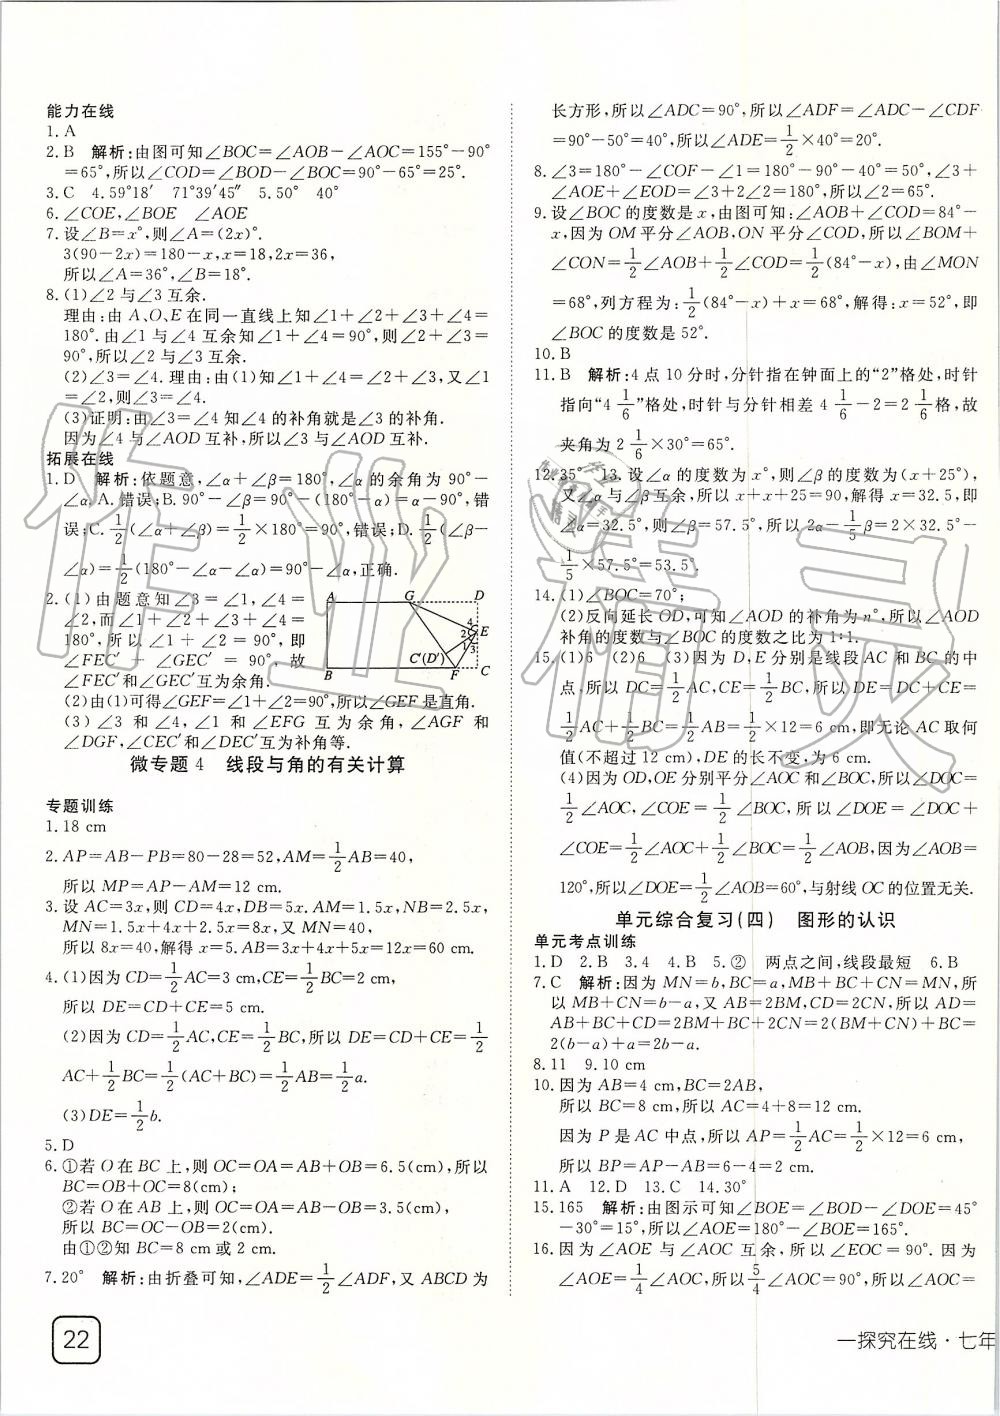 能力在线
1.A
2.B 解析:由图可知∠BOC=∠AOB-∠AOC=155°-90°
=65°,所以∠COD=∠BOD-∠BOC=90°-65°=25°.
3.C 4.59°18′ 71°39′45″ 5.50° 40°
6.∠COE,∠BOE ∠AOE
7.设∠B=x°,则∠A=(2x)°.
3(90-2x)=180-x,x=18,2x=36,
所以∠A=36°,∠B=18°.
8.(1)∠2与∠3互余.
理由:由A、O、E在同一直线上知∠1+∠2+∠3+∠4=
180°.由∠1与∠4互余知∠1+∠4=90°,则∠2+∠3=
90°,所以∠2与∠3互余.
(2)∠3=∠4.理由:由(1)知∠1+∠4=∠2+∠3,又∠1
=∠2,则∠3=∠4.
(3)证明:由∠3=∠4知∠4的补角就是∠3的补角.
因为∠4与∠AOD互补,所以∠3与∠AOD互补.
拓展在线
1.D 解析:依题意,∠α+∠β=180°,∠α的余角为90°-
∠α.A.错误;B.90°-∠β=90°-(180°-α)=α-90°,错
误;C.1/2(∠α+∠β)=1/2×180°=90°,错误;D.1/2(∠β-
∠α)=1/2(180°-∠α-∠α)=90°-∠α,正确.
2.(1)由题意知∠3=∠1,∠4=
∠2,而∠1+∠2+∠3+∠4=
180°,所以∠1+∠2=90°,即
∠FEC′+∠GEC′=90°,故
∠FEC′和∠GEC′互为余角.
A G D
4 E
2 1 3
C′(D′)
B F C
(2)由(1)可得∠GEF=∠1+∠2=90°,所以∠GEF是直角.
(3)∠3和∠4,∠1和∠EFG互为余角,∠AGF和
∠DGF,∠CEC′和∠DEC′互为补角等.
微专题4 线段与角的有关计算
专题训练
1.18 cm
2.AP=AB-PB=80-28=52,AM=1/2AB=40,
所以MP=AP-AM=12 cm.
3.设AC=3x,则CD=4x,DB=5x.AM=1.5x,NB=2.5x,
MN=1.5x+4x+2.5x=8x,又MN=40,
所以8x=40,解得x=5.AB=3x+4x+5x=12x=60 cm.
4.(1)因为CD=1/2AC=3 cm,CE=1/2BC=2 cm,
所以DE=CD+CE=5 cm.
(2)因为CD=1/2AC,CE=1/2BC,所以DE=CD+CE=1/2
AC+1/2BC=1/2(AC+BC)=1/2AB=1/2a.
(3)DE=1/2b.
5.D
6.①若O在BC上,则OC=OA=AB+OB=6.5(cm),所以
BC=OB+OC=8(cm);
②若O在AB上,则OC=OA=AB-OB=3.5(cm),
所以BC=OC-OB=2(cm).
由①②知BC=8 cm或2 cm.
7.20° 解析:由折叠可知,∠ADE=1/2∠ADF,又ABCD为
22
长方形,所以∠ADC=90°,所以∠ADF=∠ADC-∠CDF
=90°-50°=40°,所以∠ADE=1/2×40°=20°.
8.∠3=180°-∠COF-∠1=180°-90°-40°=50°,∠3+
∠AOE+∠EOD=∠3+2∠2=180°,所以∠2=65°.
9.设∠BOC的度数是x,由图可知:∠AOB+∠COD=84°-
x,因为OM平分∠AOB,ON平分∠COD,所以∠BOM+
∠CON=1/2∠AOB+1/2∠COD=1/2(84°-x),由∠MON
=68°,列方程为:1/2(84°-x)+x=68°,解得:x=52°,即
∠BOC的度数是52°.
10.B
11.B 解析:4点10分时,分针指在钟面上的“2”格处,时针
指向“4 1/6”格处,时针与分针相差4 1/6-2=2 1/6格,故
夹角为2 1/6×30°=65°.
12.35° 13.设∠α的度数为x°,则∠β的度数为(x+25°),
又∠α与∠β互余,所以x+x+25=90,解得x=32.5,即
∠α=32.5°,则∠β=57.5°,所以2α-1/5β=2×32.5°-
1/5×57.5°=53.5°.
14.(1)∠BOC=70°;
(2)反向延长OD,可知∠AOD的补角为n°,所以∠AOD
补角的度数与∠BOC的度数之比为1∶1.
15.(1)6 (2)6 (3)因为D、E分别是线段AC和BC的中
点,所以DC=1/2AC,CE=1/2BC,所以DE=DC+CE=
1/2AC+1/2BC=1/2AB=1/2×12=6 cm,即无论AC取何
值(不超过12 cm),DE的长不变,为6 cm.
(4)因为OD,OE分别平分∠AOC和∠BOC,所以∠DOC=
1/2∠AOC,∠COE=1/2∠BOC,所以∠DOE=∠DOC+
∠COE=1/2∠AOC+1/2∠BOC=1/2∠AOB,因为∠AOB=
120°,所以∠DOE=1/2∠AOB=60°,与射线OC的位置无关.
单元综合复习(四) 图形的认识
单元考点训练
1.D 2.B 3.4 4.B 5.② 两点之间,线段最短 6.B
7.C 解析:因为MN=b,BC=a,MB+BC+CN=MN,所
以MB+CN=b-a,又AB=2BM,CD=2CN,所以AD=
AB+BC+CD=2BM+BC+2CN=2(BM+CN)+BC=
2(b-a)+a=2b-a.
8.11 9.10 cm
10.因为AB=4 cm,BC=2AB,
所以BC=8 cm,所以AC=4+8=12 cm.
因为P是AC中点,所以AP=1/2AC=1/2×12=6 cm,
所以BP=AP-AB=6-4=2 cm.
11.A 12.D 13.C 14.30°
15.165 解析:由图示可知∠BOE=∠BOD-∠DOE=45°
-30°=15°,所以∠AOE=180°-∠BOE=165°.
16.因为∠AOE与∠AOC互余,所以∠EOC=90°.因为
∠AOE=1/4∠AOC,所以5/4∠AOC=90°,所以∠AOC=
一探究在线·七年
作业精灵